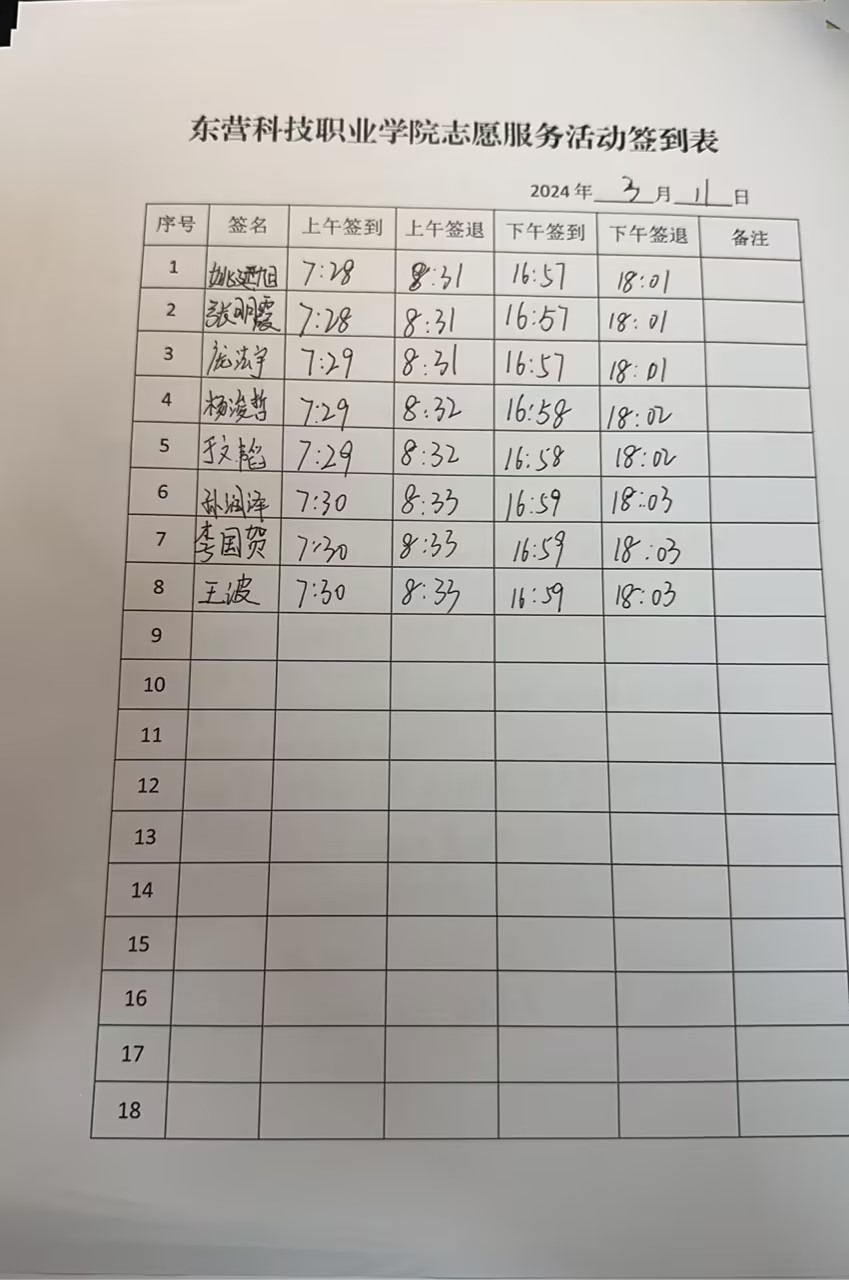 东营科技职业学院志愿服务活动签到表
2024 年 3 月 11 日
序号 签名 上午签到 上午签退 下午签到 下午签退 备注
1 7:28 8:31 16:57 18:01
2 张明霞 7:28 8:31 16:57 18:01
3 庞法宇 7:29 8:31 16:57 18:01
4 杨浚哲 7:29 8:32 16:58 18:02
5 于文韬 7:29 8:32 16:58 18:02
6 孙润泽 7:30 8:33 16:59 18:03
7 李国贺 7:30 8:33 16:59 18:03
8 王波 7:30 8:33 16:59 18:03
9
10
11
12
13
14
15
16
17
18